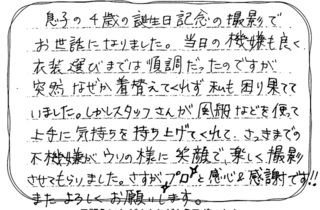 息子の4歳の誕生日記念の撮影で
お世話になりました。当日の機嫌も良く
衣装選びまでは順調だったのですが
突然なぜか着替えてくれず私も困り果てて
いました。しかしスタッフさんが風船などを使って
上手に気持ちを持ち上げてくれて、さっきまでの
不機嫌がウソの様に笑顔で、楽しく撮影
させてもらいました。さすがプロ と感心&感謝です!!
また よろしく お願いします。